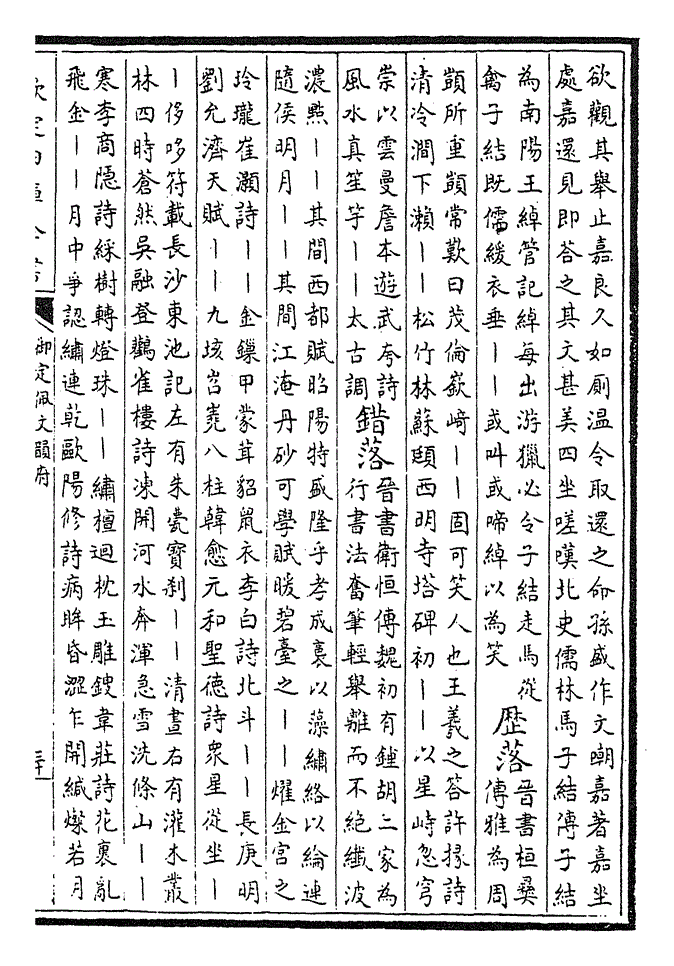 欲觀其舉止嘉良久如廁温令取還之命孫盛作文嘲嘉著嘉坐
處嘉還見即荅之其文甚美四坐嗟嘆北史儒林馬子結傳子結
為南陽王綽管記綽每出游獵必令子結走馬從
禽子結既儒緩衣垂丨丨或叫或啼綽以為笑
歴落
晉書桓彞
傳雅為周
顗所重顗常歎曰茂倫嶔﨑丨丨固可笑人也王羲之答許掾詩
清泠澗下瀨丨丨松竹林蘇頲西明寺塔碑初丨丨以星峙忽穹
崇以雲曼詹本遊武夷詩
風水真笙竽丨丨太古調
錯落
晉書衛恒傳魏初有鍾胡二家為
行書法奮筆輕舉離而不絶纖波
濃㸃丨丨其間西都賦昭陽特盛隆乎孝成裹以藻繡絡以綸連
隨侯明月丨丨其間江淹丹砂可學賦暖碧臺之丨丨燿金宫之
玲瓏崔灝詩丨丨金鏁甲蒙茸貂鼠衣李白詩北斗丨丨長庚明
劉允濟天賦丨丨九垓岧嶤八柱韓愈元和聖德詩衆星從坐丨
丨侈哆符載長沙東池記左有朱甍寳刹丨丨清晝右有灌木叢
林四時蒼然吳融登鸛雀樓詩凍開河水奔渾急雪洗條山丨丨
寒李商隐詩綵樹轉燈珠丨丨繡檀迴枕玉雕鎪韋莊詩花裏亂
飛金丨丨月中爭認繡連乾歐陽修詩病眸昏澀乍開緘燦若月
御定佩文韻府